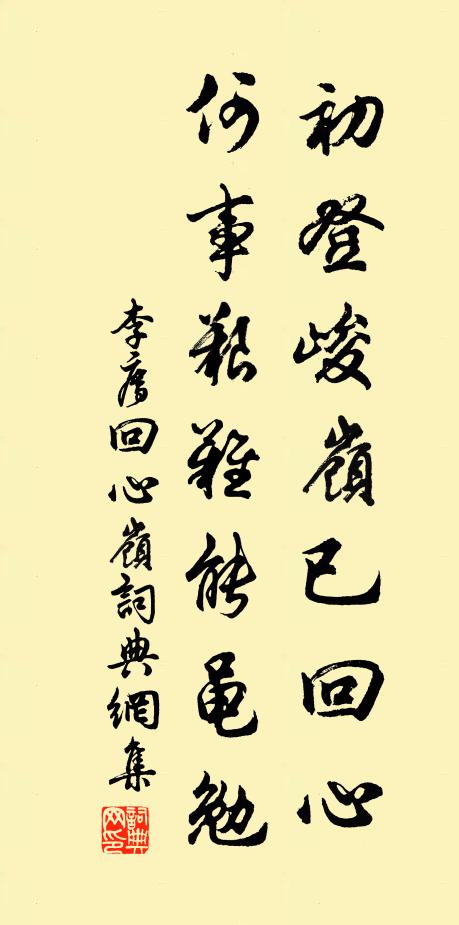 初登峻嶺已回心
何事艱難能黽勉
李廌回心嶺詞典網集
詞典網印